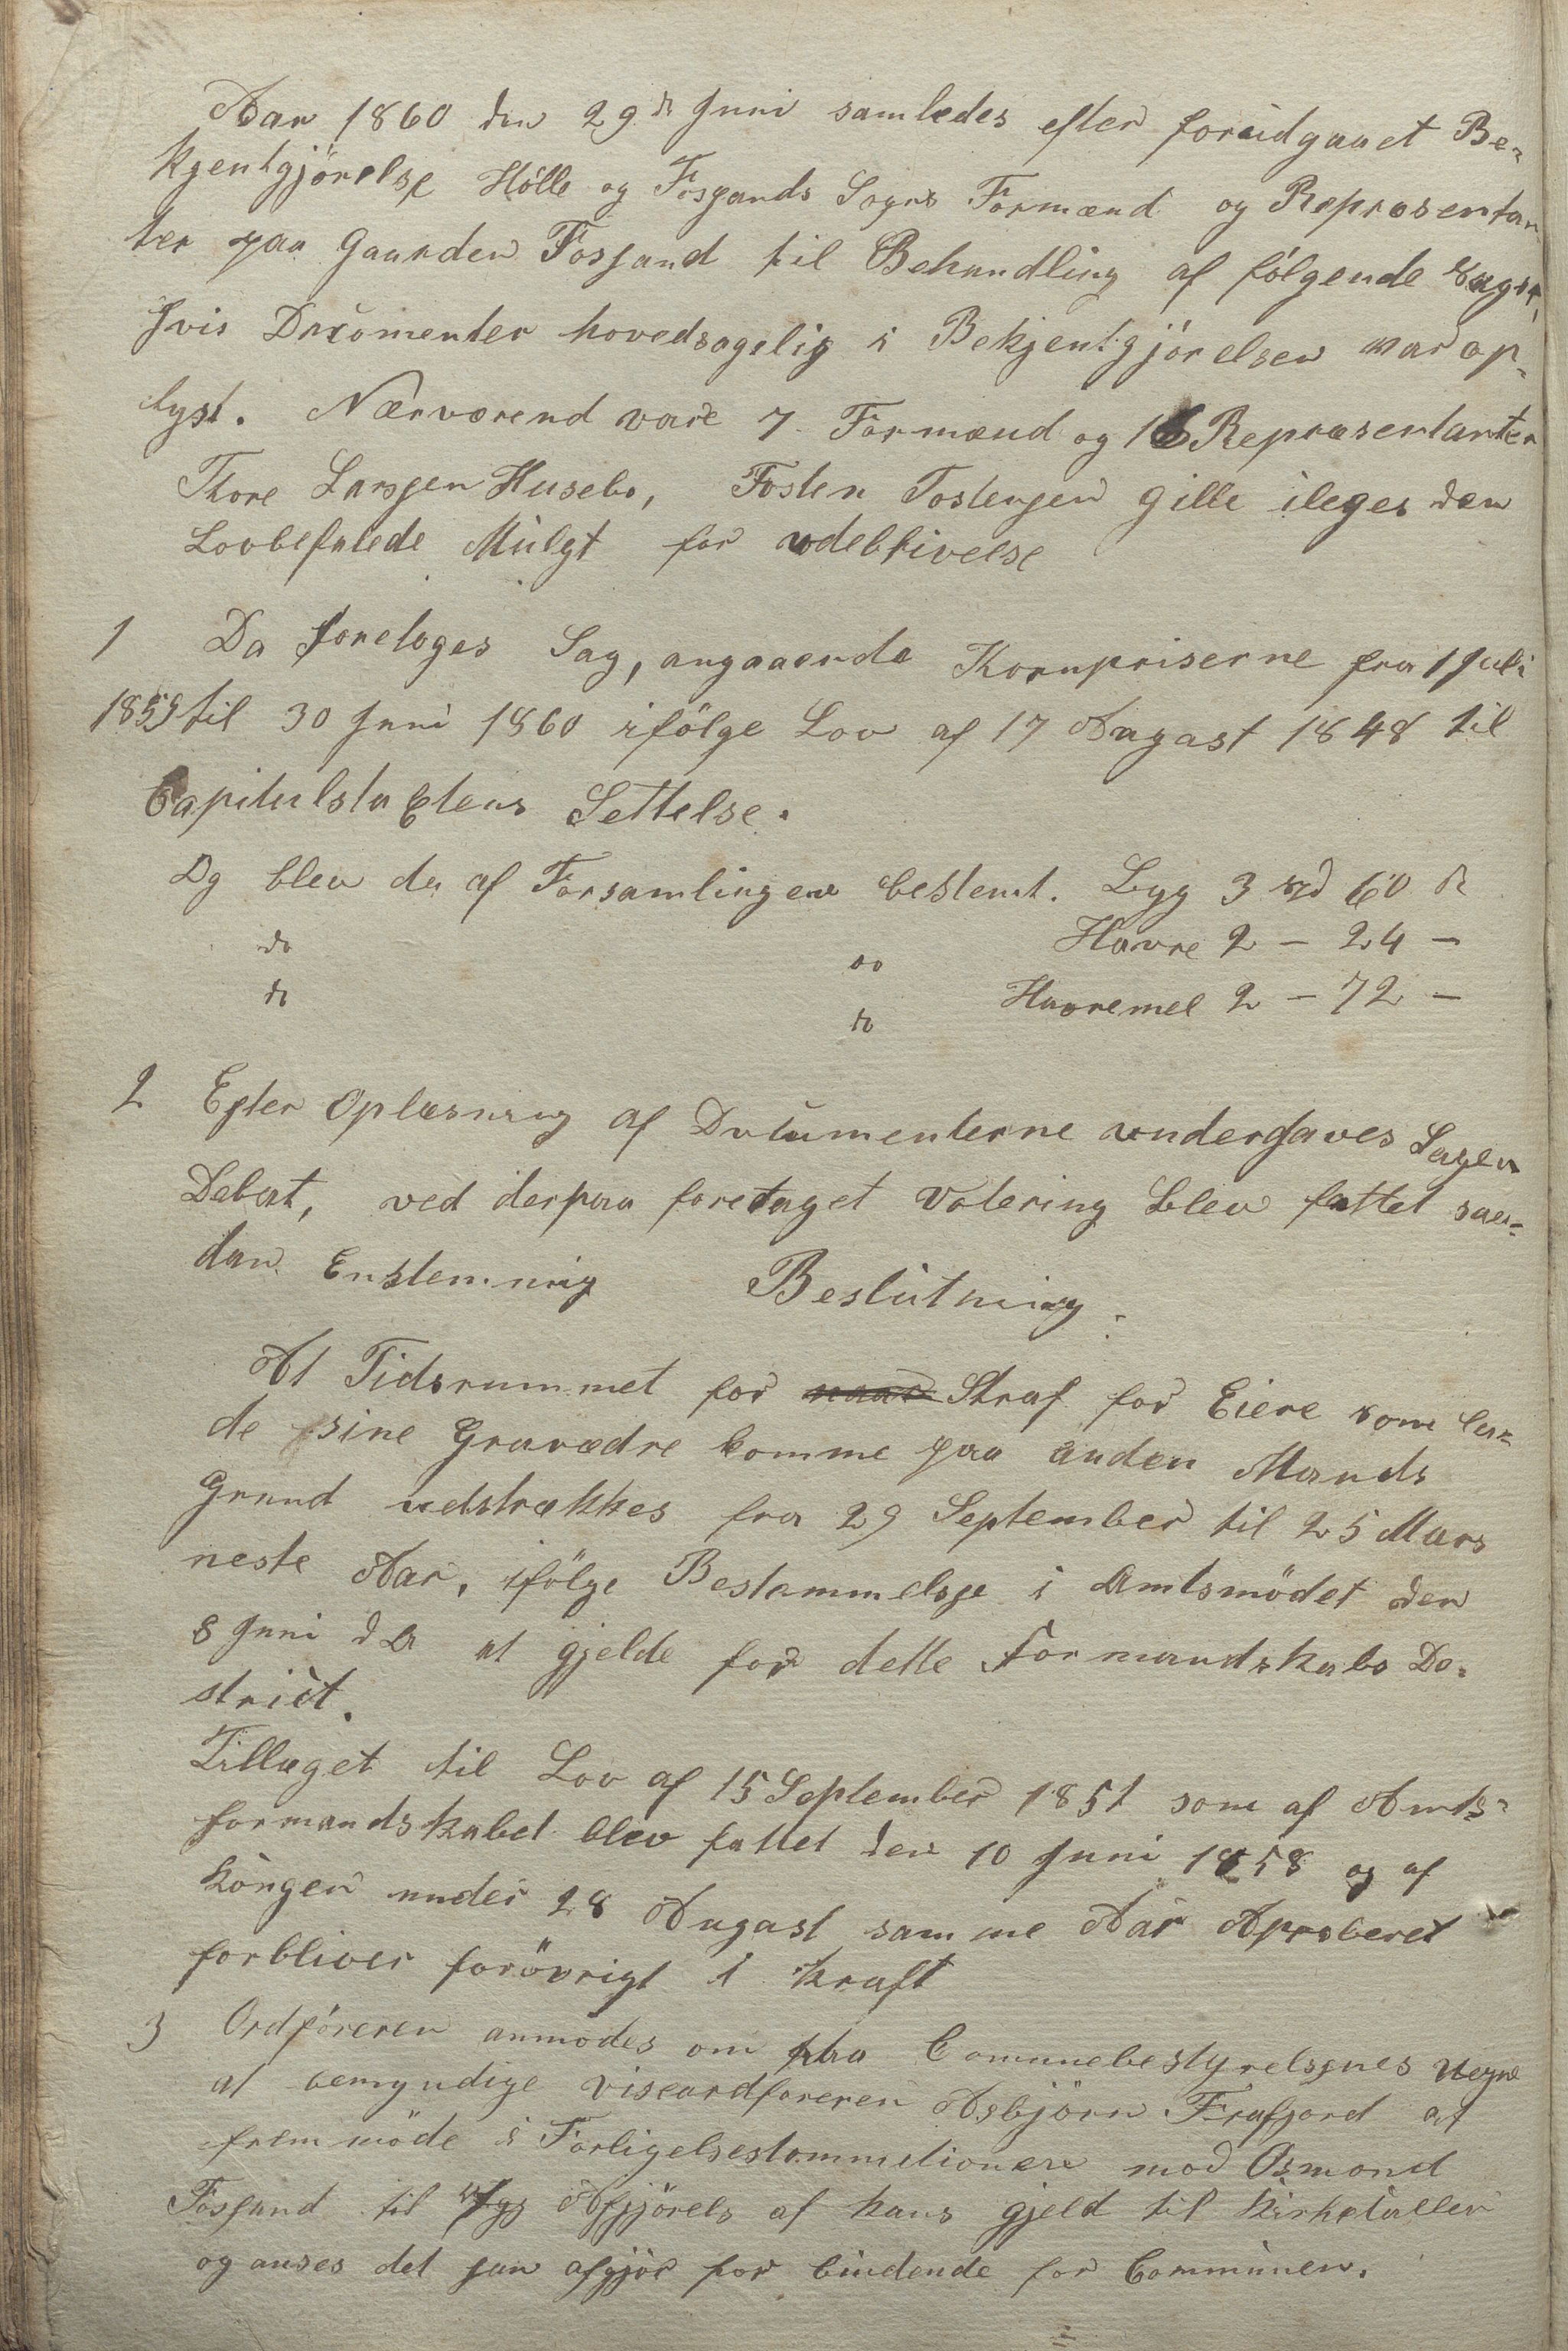 Aar 1860 den 29de Juni samledes efter forudgaaet Be-
kjentgjörelse Hölle og Fosgands Sogns Formænd og Repræsentan
ter paa Gaarden Fossand til Behandling af fölgende Sager,
hvis Documenter hovedsagelig i Bekjentgjörelsen var op-
lyst. Nærværend vare 7 Formænd og 16 Repræsentanter
Thore Larssen Husebø, Tosten Tostensen Gille ileges den
Lovbefalede Mulgt for udeblivelse
1 Da foretoges Sag, angaaende Kornpriserne fra 1 Juli
1859 til 30 Juni 1860 ifölge Lov af 17 August 1848 til
Capitulstaxtens Settelse.
Og blev da af Forsamlingen bestemt. Byg 3 60
do do Havre 2 - 24 -
do do Havremel 2 - 72 -
2 Efter Oplæsning af Documenterne undergaves Sagen
Debat, ved derpaa foretaget Votering blev fattet saa-
dan Enstemmig Beslutning:
At Tidsrummet for Straf for Eiere som la-
de sine Gravædre komme paa anden Mands
Grund udstrækkes fra 29 September til 25 Mars
neste Aar, ifölge Bestemmelsse i Amtsmödet den
8 Juni d A at gjelde for dette Formandskabs De-
strict.
Tillæget til Lov af 15 September 1851 som af Amts-
formandskabet blev fattet den 10 Juni 1858 og af
Kongen under 28 August samme Aar Aproberet
forbliver forövrigt i kraft
3 Ordföreren anmodes om paa Comunebestyrelssnes Vegne
at bemyndige viseordföreren Asbjörn Frafjord at
fremmöde i Forligelseskommitionen mod Osmond
Fossand til Afjjörels af hans gjeld til Kirketallen
og anses det han afgjör for bindende for Communen.